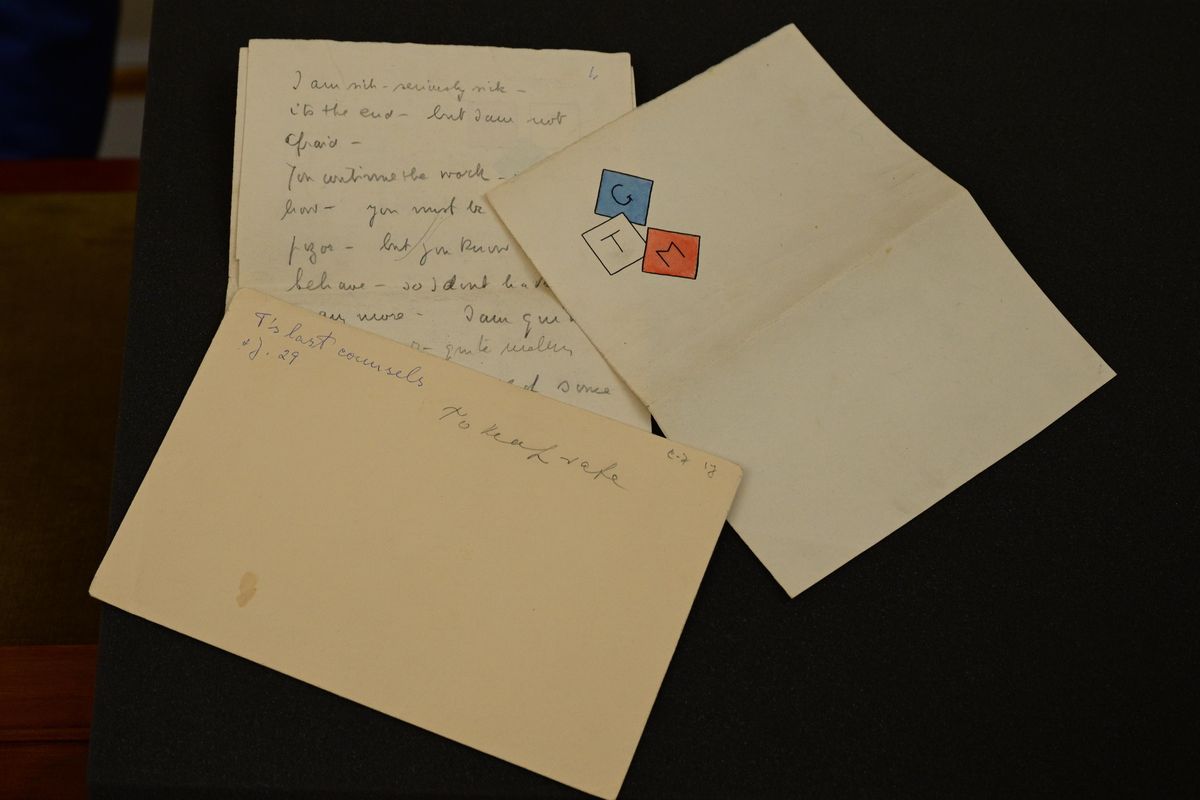 I am sick - seriously sick -
it's the end - but I am not
afraid -
You continue the work -
how - you must be
but you know
behave - so I dont have
any more - I am
- quite
since
G
T
M
T's last counsels
29
To keap safe